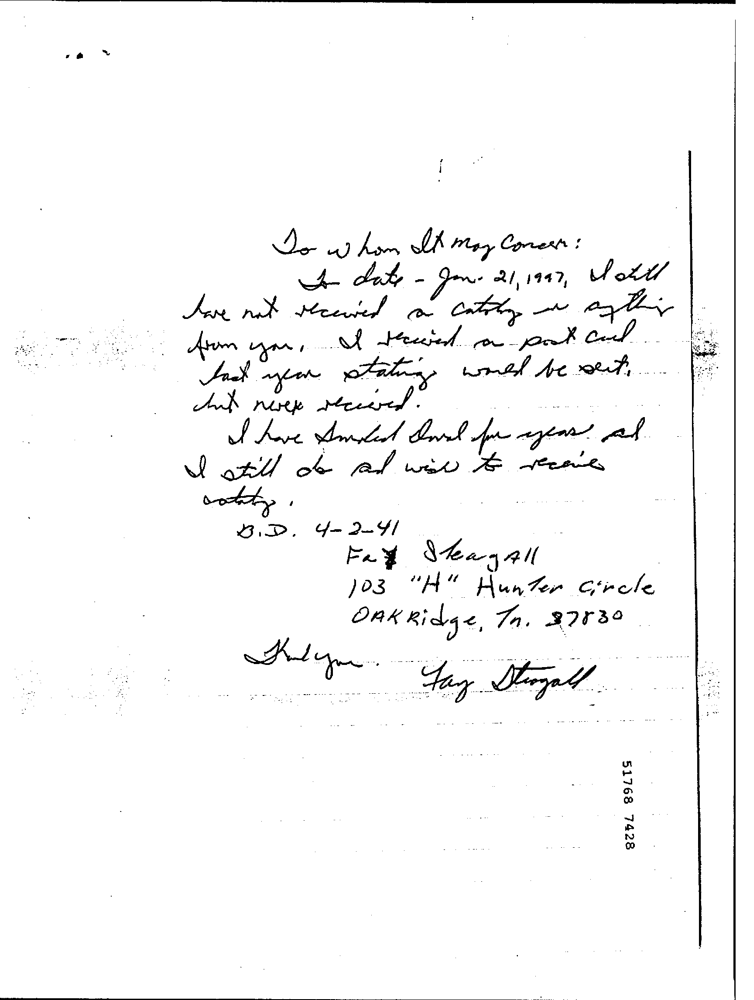 To whom It may Concern:
To date - Jan. 21, 1997, I still
have not received a catolog or anything
from you. I received a post card
last year stating would be sent,
but never received.
I have Smoked for years and
I still do and wish to receive
catolog.
B.D. 4-2-41
Fay SteagAll
103 "H" Hunter Circle
OAK Ridge, Tn. 37830
Thank you.
Fay Steagall
51768 7428